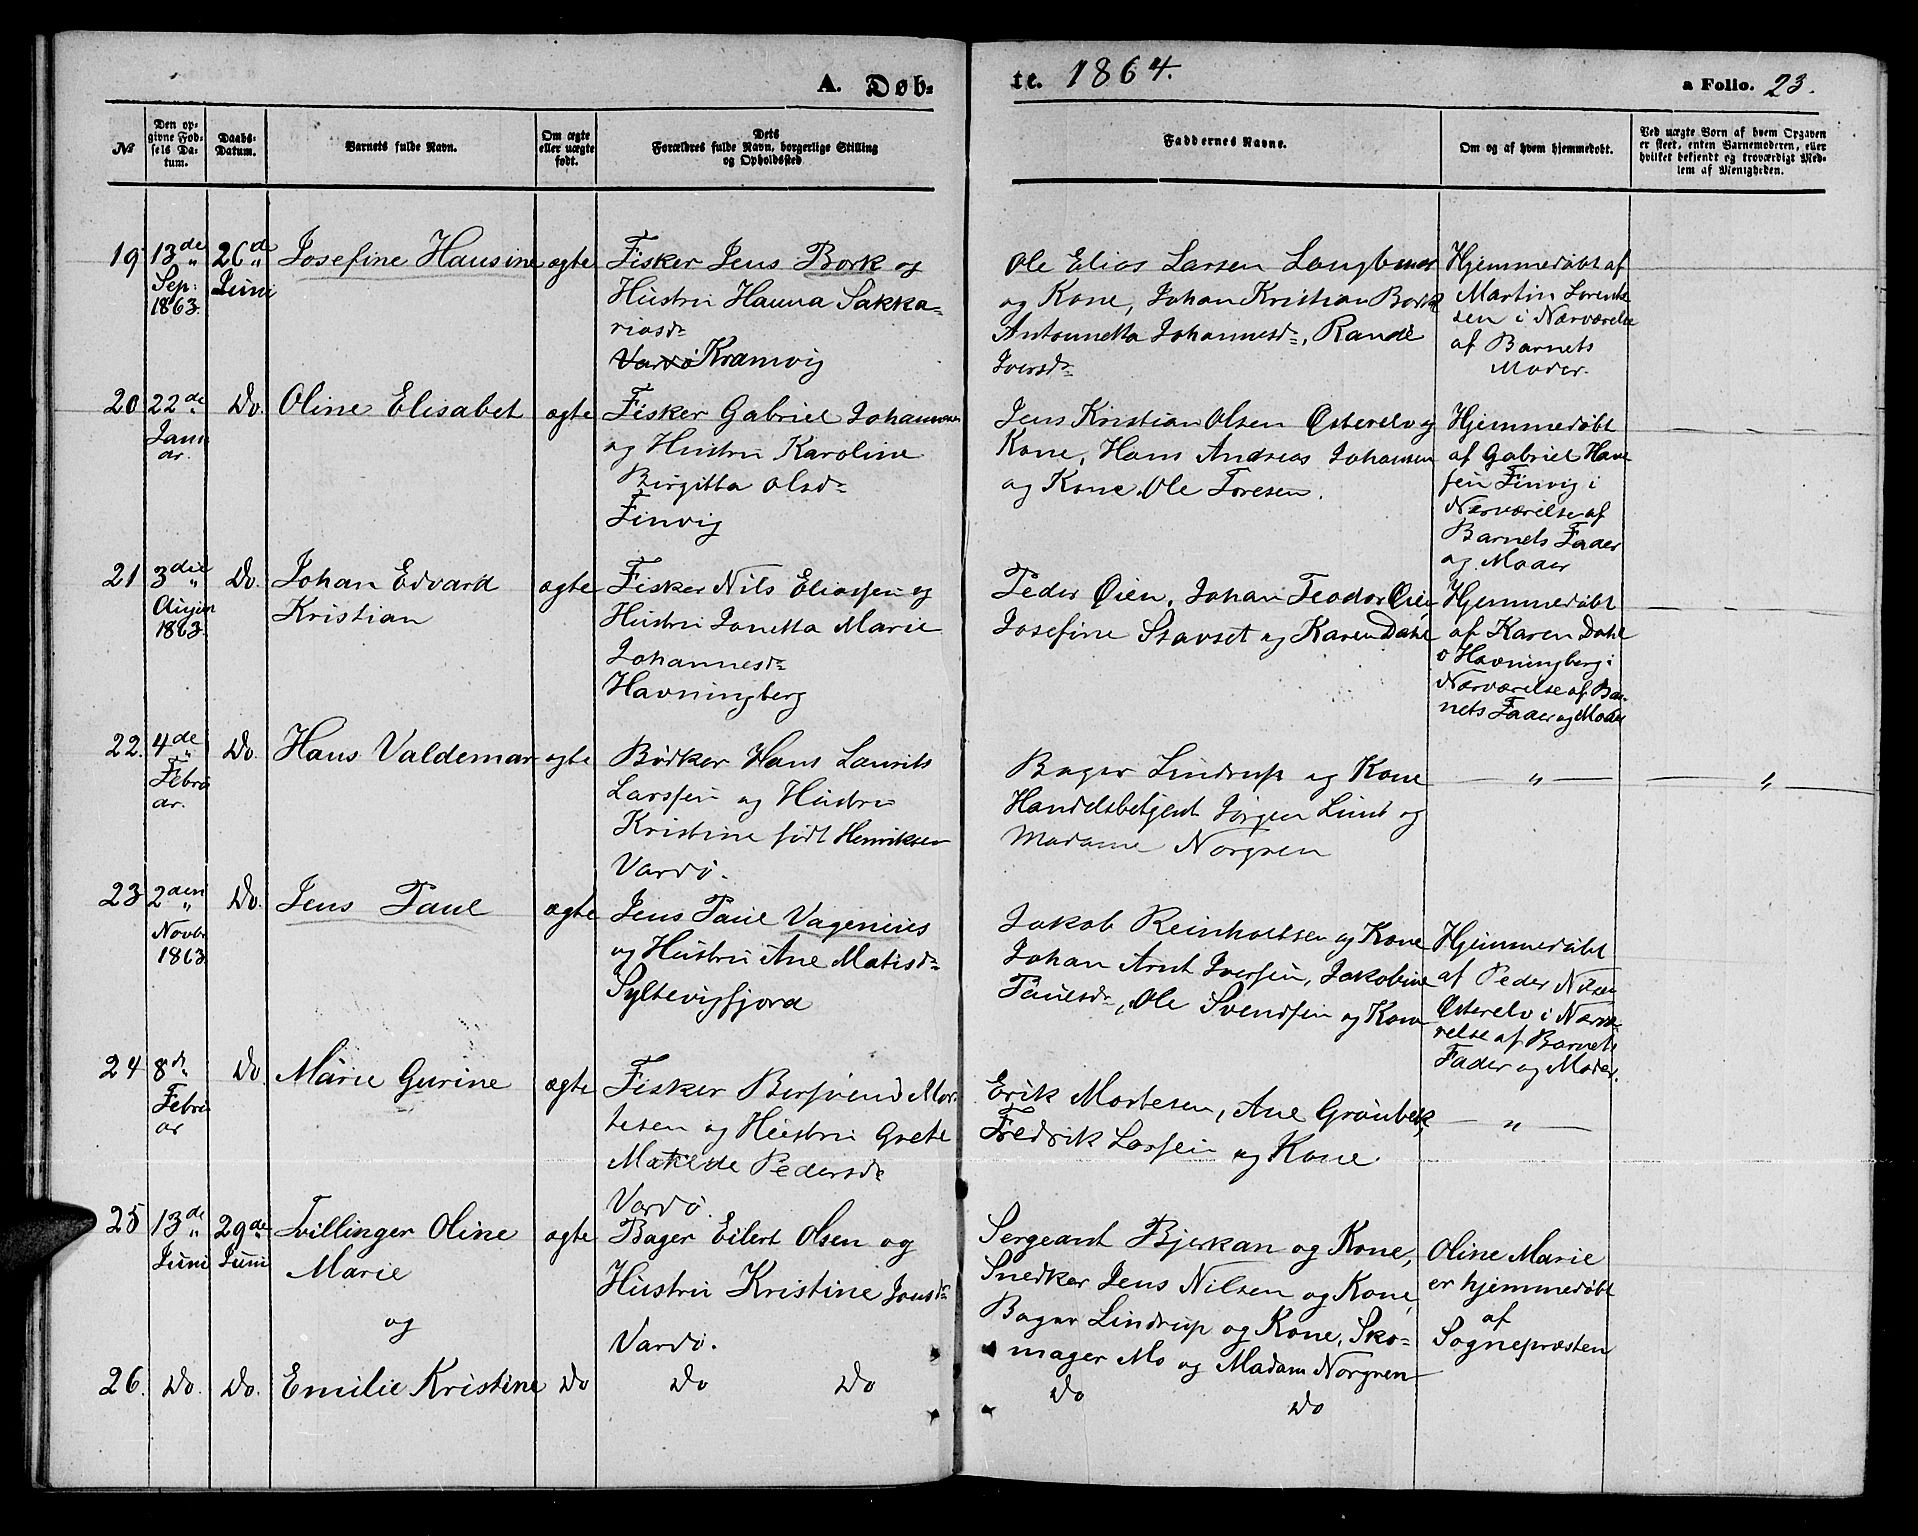 A. Døb-
te. 1864.
a Folio. 23.
№
Den op-
givne Fød-
sels Da-
tum.
Daabs-
Datum.
Barnets fulde Navn.
Om ægte
eller uægte
født.
Dets
Forældres fulde Navn, borgerlige Stilling
og Opholdsted.
Faddernes Navne.
Om og af hvem hjemmedøbt.
Ved uægte Børn af hvem Opgaven
er skeet, enten Barnemoderen, eller
hvilket bekjendt og troværdigt Med-
lem af Menigheden.
19
13de
Sep:
1863.
26de
Juni
Josefine Hansine
ægte
Fisker Jens Bork og
Hustru Hanna Sakka-
riasdr
Vardø Kramvig
Ole Elias Larsen
og Kone, Johan Kristian Bork
Antonnetta Johannesdr, Rande
Iversdr
Hjemmedøbt af
Martin Lorent
sen i Nærværelse
af Barnets
Moder.
20
22de
Janu
ar.
Do.
Oline Elisabet
ægte
Fisker Gabriel Johannesen
og Hustru Karoline
Birgitta Olsdr
Finvig
Jens Kristian Olsen Østerelv og
Kone, Hans Andreas Johansen
og Kone, Ole Toresen.
Hjemmedøbt
af Gabriel Han
sen Finvig i
Nærværelse af
Barnets Fader
og Moder
21
3die
1863.
Do.
Johan Edvard
Kristian
ægte
Fisker Nils Eliassen og
Hustru Janetta Marie
Johannesdr
Havningberg
Peder Øien, Johan Teodor Øien
Josefine Stavset og Karen Dahl
Hjemmedøbt
af Karen Dahl
Havningberg i
Nærværelse af Bar-
nets Fader og Moder
22.
4de
Febru
ar.
Do.
Hans Valdemar
ægte
Bødker Hans Laurits
Larssen og Hustru
Kristine født Henriksen
Vardø.
Bager Lindrup og Kone
Handelsbetjent Jørgen Lund og
Madame Norgren
— „ —
— „
23
2den
Novbr
1863
Do.
Jens Paul
ægte
Jens Paul Vagenius
og Hustru Ane Matisdr
Syltevigfjord
Jakob Reinholtsen og Kone
Johan Arnt Iversen, Jakobine
Paulsdr, Ole Svendsen og Kone
Hjemmedøbt
af Peder Nilsen
Østerelv i Nærvæ-
relse af Barnets
Fader og Moder.
24
8de
Febru
ar
Do.
Marie Gurine
ægte
Fisker Bersvend Mor-
tesen og Hustru Grete
Matilde Pedersdr
Vardø.
Erik Mortesen, Ane Grønbek,
Fredrik Larsen og Kone
— „ —
25
13de
Juni
29de
Juni
Tvillinger Oline
Marie
og
ægte
Bager Eilert Olsen og
Hustru Kristine Jonsdr
Vardø.
Sergeant Bjerkan og Kone,
Snedker Jens Nilsen og Kone,
Bager Lindrup og Kone, Sko-
mager Mo og Madam Norgren
Oline Marie
er hjemmedøbt
af
Sognepræsten
26.
Do.
Do.
Emilie Kristine
Do
Do
Do
Do
Do